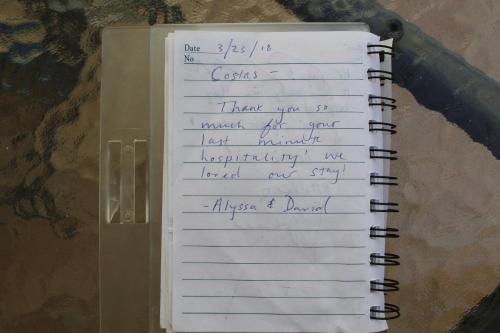 Date 3/23/18
No
Costas -
Thank you so
much for your
last minute
hospitality! We
loved our stay!
- Alyssa & David